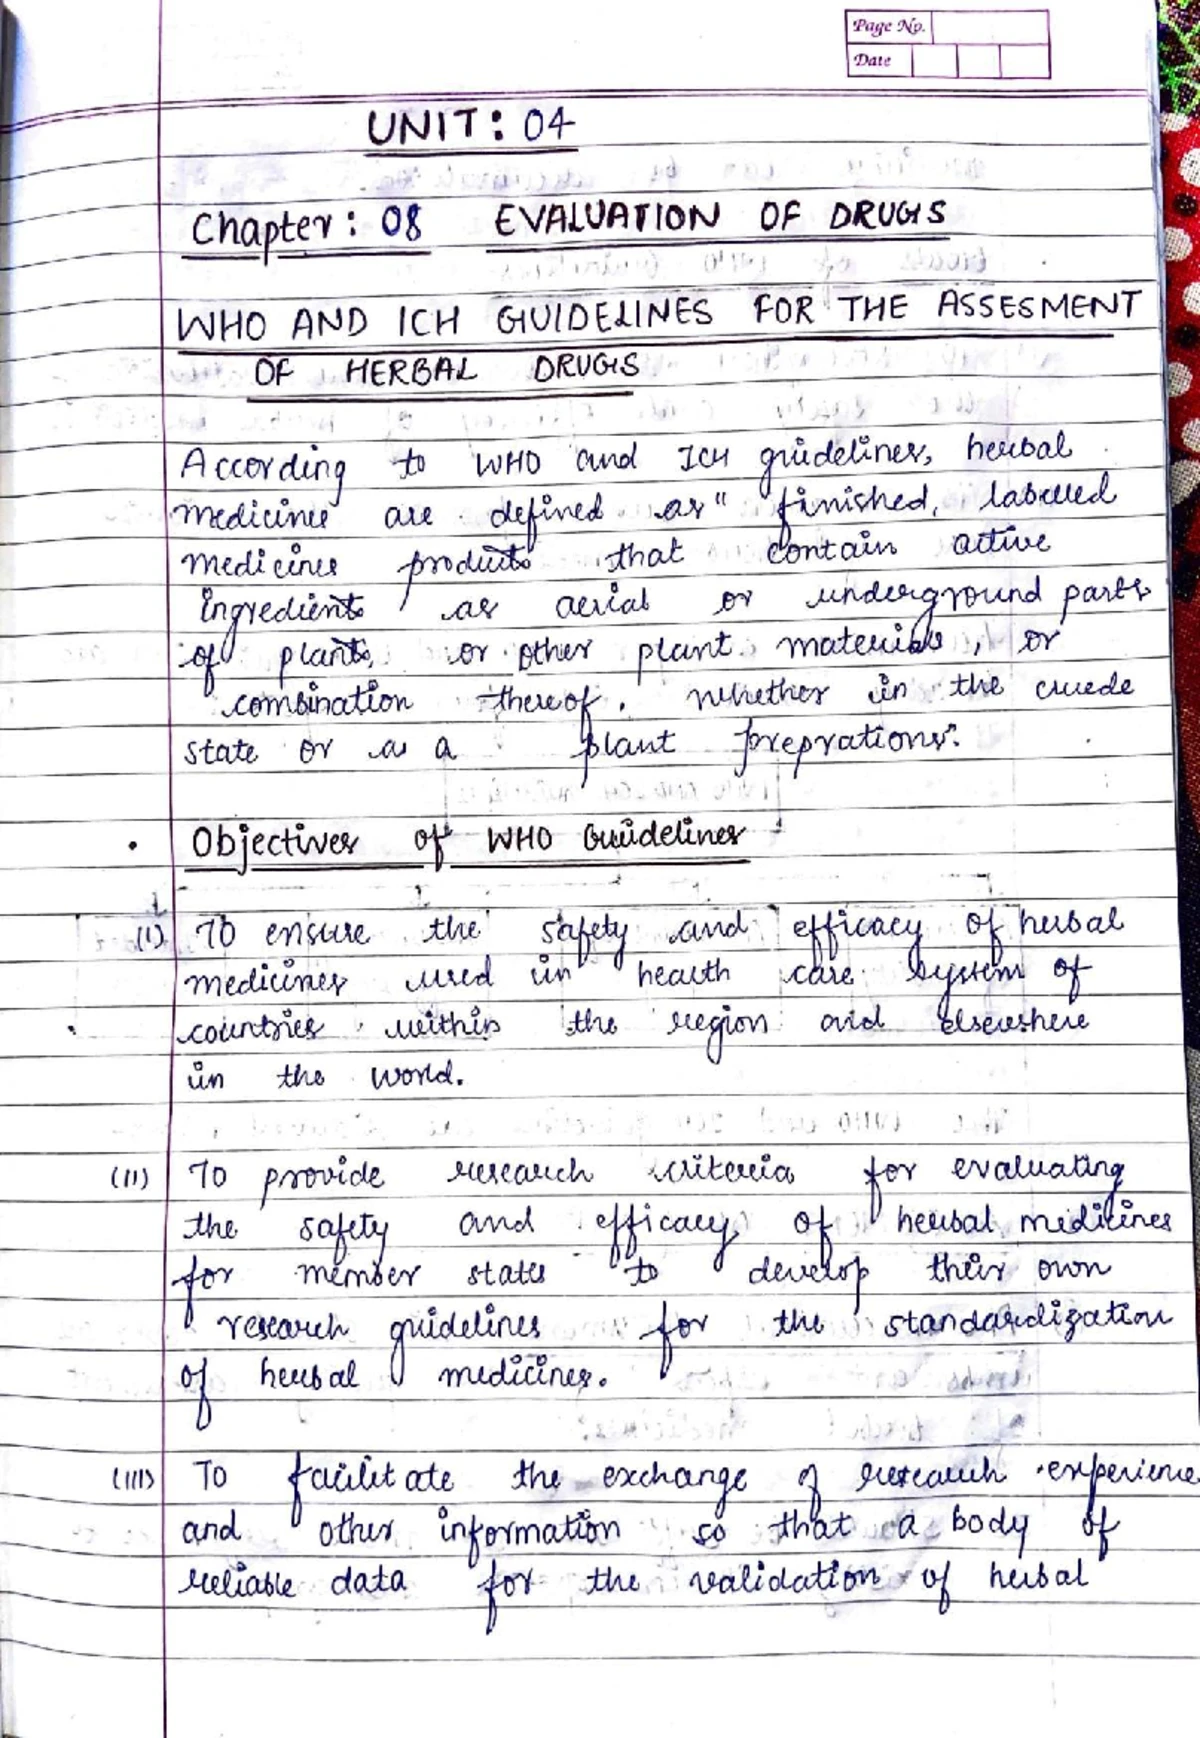 Page No.
Date
UNIT: 04
Chapter: 08 EVALUATION OF DRUGS
WHO AND ICH GUIDELINES FOR THE ASSESMENT
OF HERBAL DRUGS
According to WHO and ICH guidelines, herbal
medicine are defined as " finished, labelled
medicines products that contain active
ingredients as aerial or underground parts
of plants, or other plant materials, or
combination thereof. whether in the cruede
state or as a plant preprations".
• Objectives of WHO Guidelines
(i) To ensure the safety and efficacy of herbal
medicines used in health care system of
countries within the region and elsewhere
in the world.
(ii) To provide research criteria for evaluating
the safety and efficacy of herbal medicines
for member states to develop their own
research guidelines for the standardization
of herbal medicines.
(iii) To facilitate the exchange of research experience
and other information so that a body of
reliable data for the validation of herbal